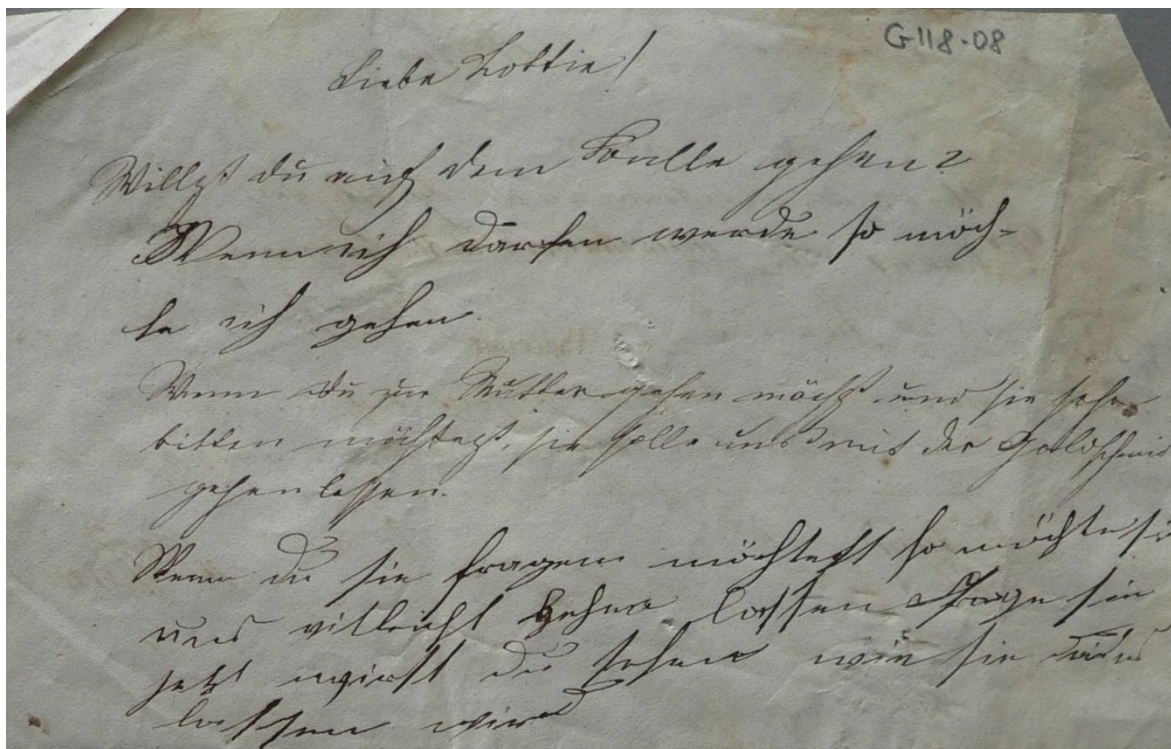 G118-08
Liebe Lottie!
Willst du auf dem Balle gehen?
Wenn ich darfen werde so möch-
te ich gehen
Wenn du zur Mutter gehen möchst und sie sehr
bitten möchtest, sie solle uns mit der Goldschmid
gehen lassen.
Wenn du sie fragen möchtest so möchte sie
uns villeicht gehen lassen Frage sie
jetzt wirst du sehen wie sie uns
lassen wird